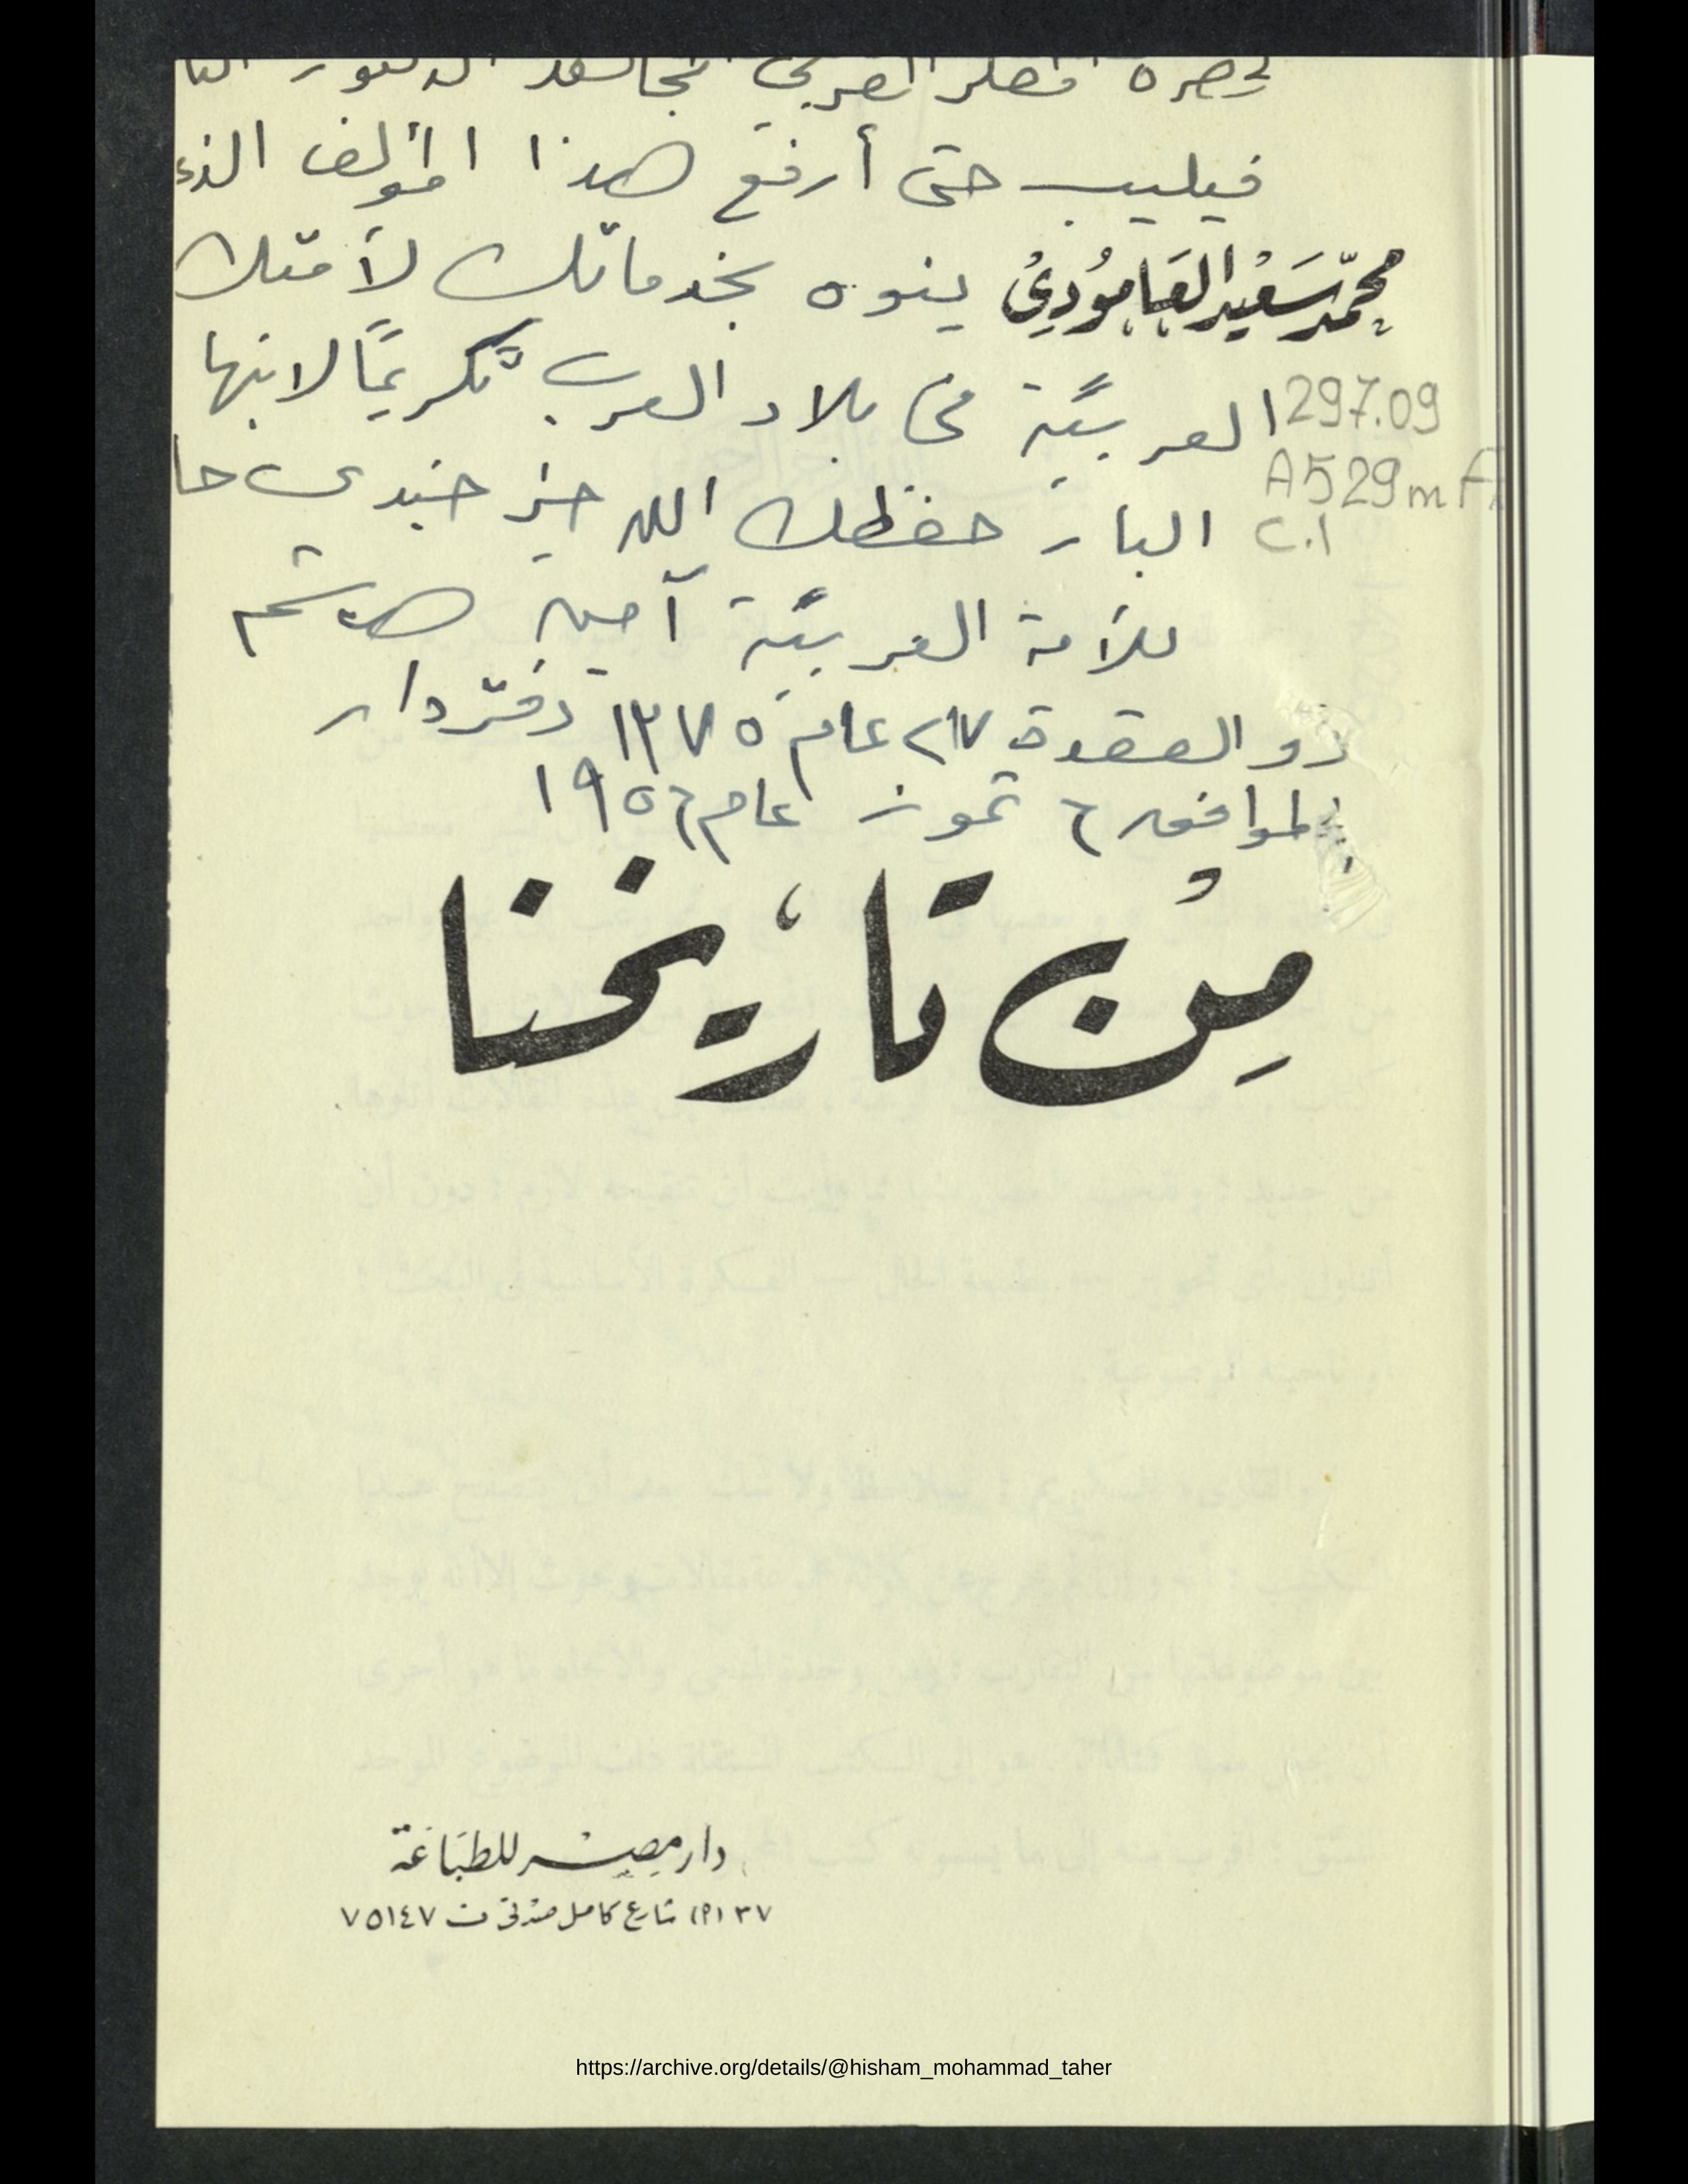 لحضرة العربي الدكتور
فيليب حتى أرفع هذا المؤلف الذي
محمّد سَعيْد العَامُودِيْ
ينوه بخدماتك لأمتك
العربيَّة في بلاد العرب تكريمًا لابنها
297.09
A529mA
C.1
البار حفظك الله خير جندي
للأمة العربيَّة آمين هاشم
ذو القعدة ٢٧ عام ١٣٧٥ دفتردار
الموافق ٦ تموز عام ١٩٥٦
مِنْ تاريخنا
دار مصر للطبَاعَة
٣٧ (٩) شارع كامل صدقى ت ٧٥١٤٧
https://archive.org/details/@hisham_mohammad_taher